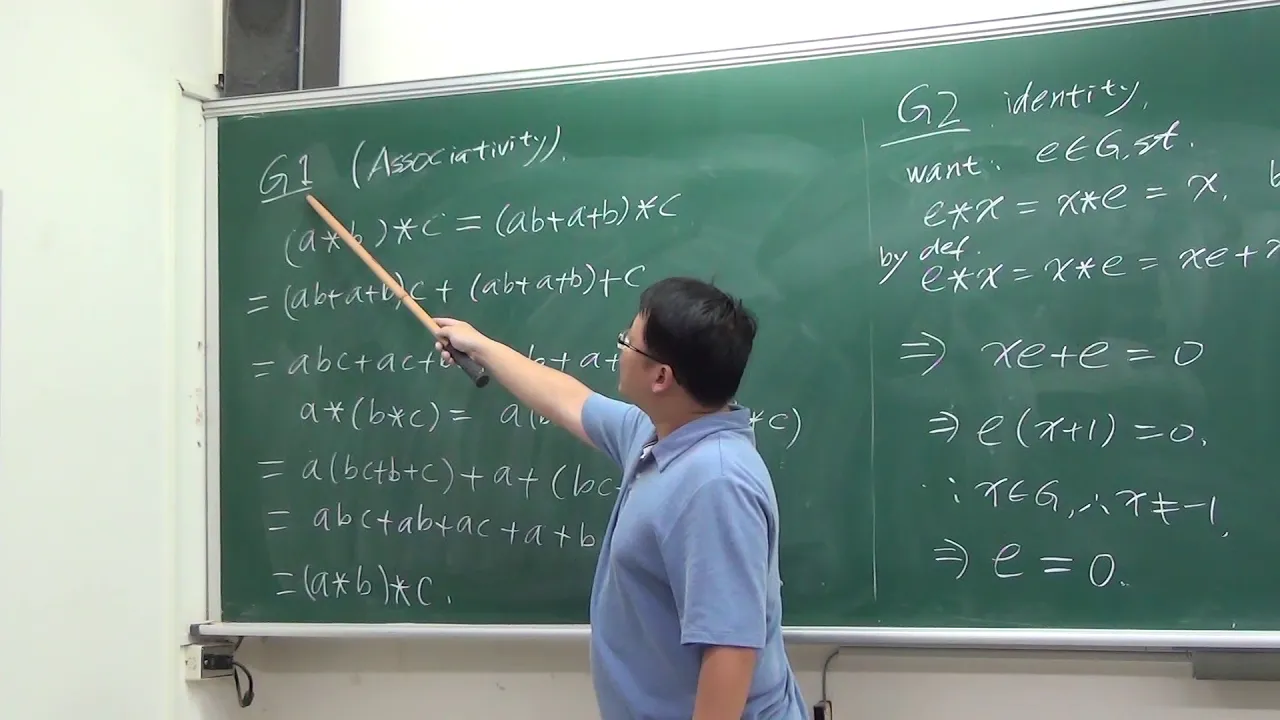 G1 (Associativity).
(a*b)*c = (ab+a+b)*c
= (ab+a+b)c + (ab+a+b)+c
= abc+ac+ b+a+
a*(b*c) = a(b *c)
= a(bc+b+c)+a+(bc
= abc+ab+ac+a+b
=(a*b)*c.
G2 identity,
want: e∈G, st.
e*x = x*e = x,
by def.
e*x = x*e = xe+x
⇒ xe+e = 0
⇒ e(x+1) = 0.
∵ x∈G, ∴ x≠-1,
⇒ e = 0.